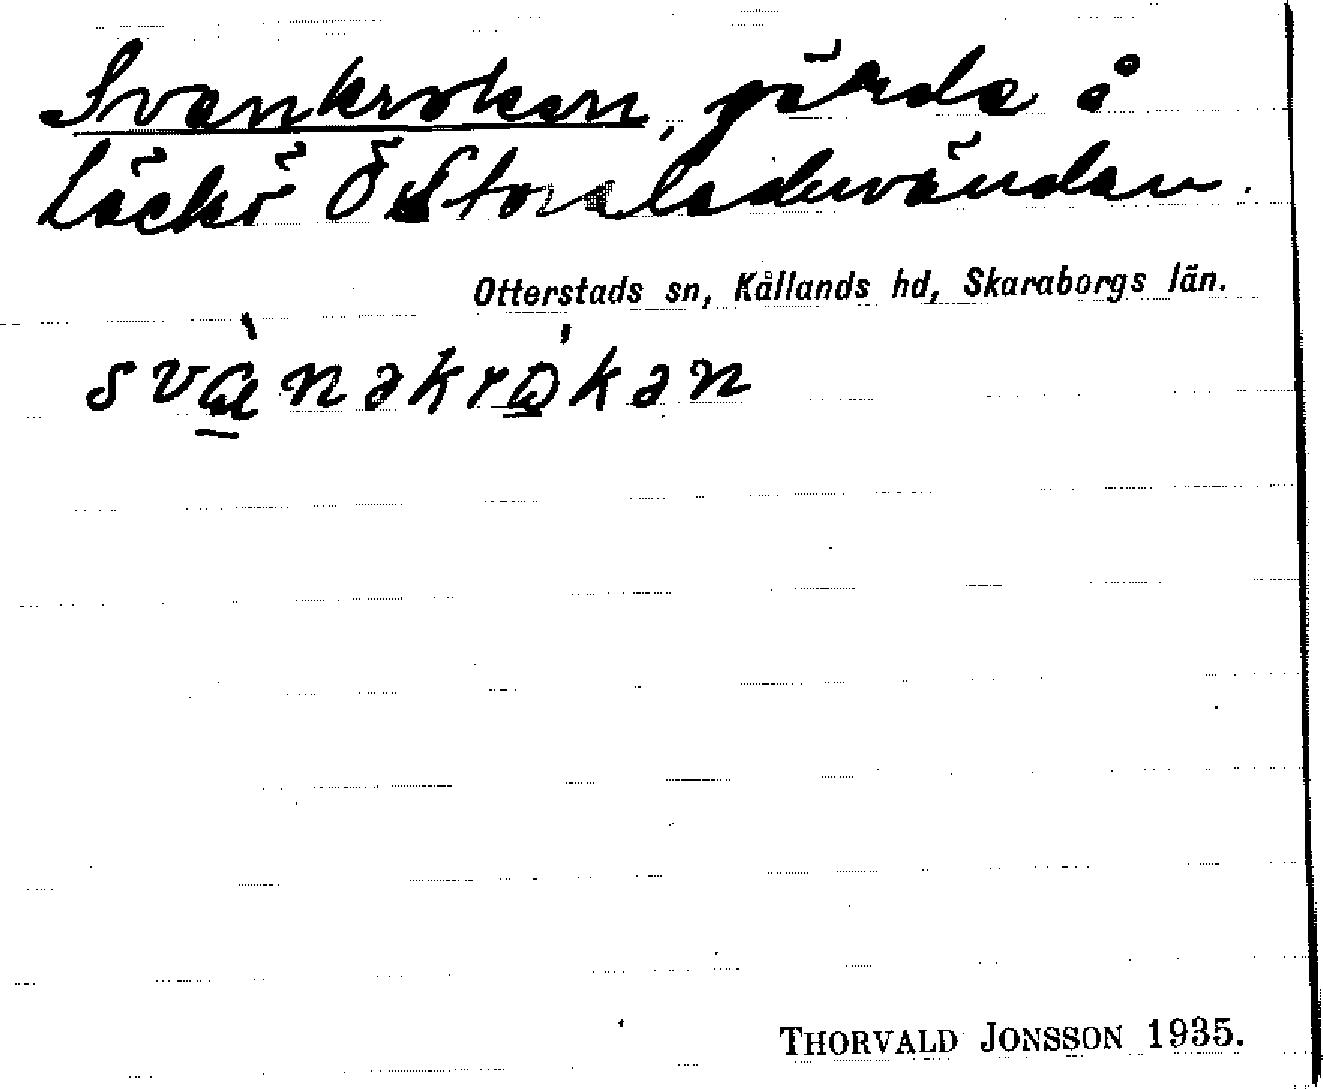 Svankroken, gärda å
Läckö Ö Storaladuvändan.
Otterstads sn, Kållands hd, Skaraborgs län.
svànəkrókən
THORVALD JONSSON 1935.